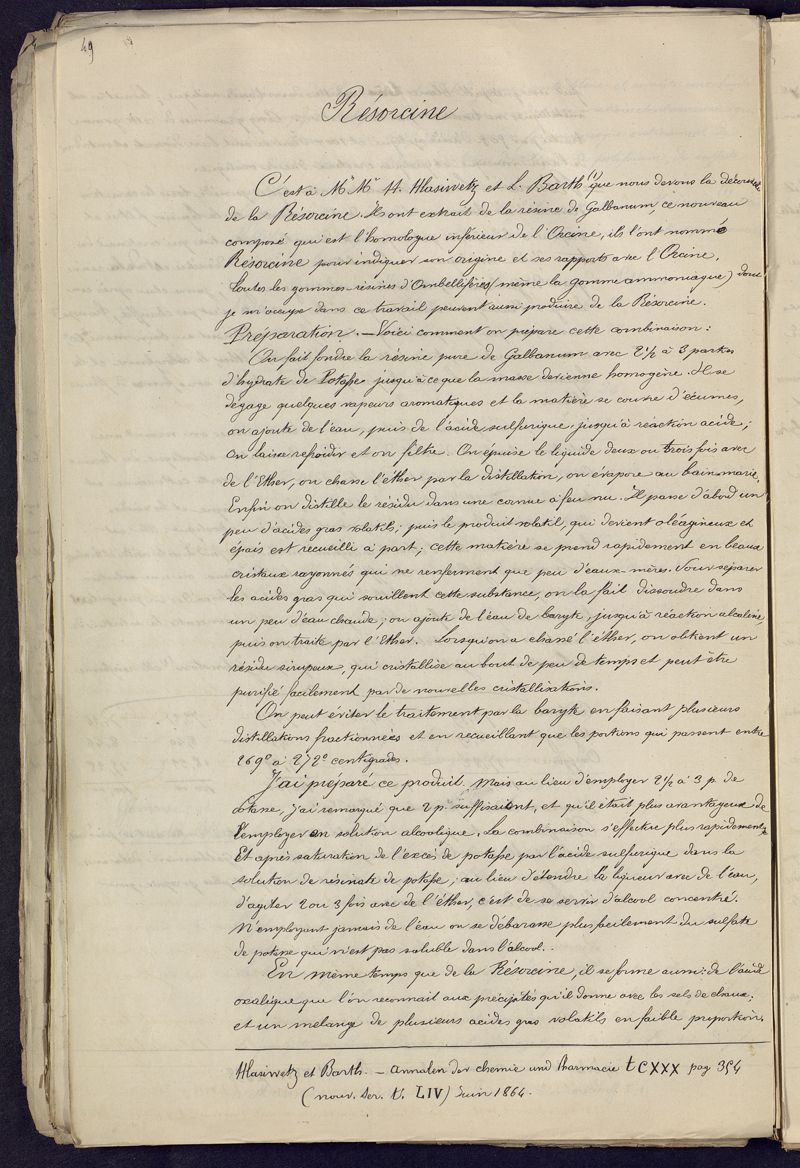 49
Résorcine
C'est à Mr Mr H. Hlasiwetz et L. Barth (1) que nous devons la découverte
de la Résorcine. Ils ont extrait de la résine de Galbanum, ce nouveau
composé qui est l'homologue inférieur de l'Orcine, ils l'ont nommé
Résorcine pour indiquer son origine et ses rapports avec l'Orcine.
Toutes les gommes-résines d'Ombellifères (même la gomme ammoniaque) dont
je m'occupe dans ce travail peuvent aussi produire de la Résorcine.
Préparation. — Voici comment on prépare cette combinaison :
On fait fondre la résine pure de Galbanum avec 2½ à 3 parties
d'hydrate de Potasse jusqu'à ce que la masse devienne homogène. Il se
dégage quelques vapeurs aromatiques et la matière se couvre d'écumes,
on ajoute de l'eau, puis de l'acide sulfurique, jusqu'à réaction acide ;
on laisse refroidir et on filtre. On épuise le liquide deux ou trois fois avec
de l'Ether, on chasse l'éther par la distillation, on évapore au bain-marie.
Enfin on distille le résidu dans une cornue à feu nu. Il passe d'abord un
peu d'acides gras volatils ; puis le produit volatil, qui devient oléagineux et
épais est recueilli à part ; cette matière se prend rapidement en beaux
cristaux rayonnés qui ne renferment que peu d'eaux-mères. Pour séparer
les acides gras qui souillent cette substance, on la fait dissoudre dans
un peu d'eau chaude ; on ajoute de l'eau de baryte, jusqu'à réaction alcaline,
puis on traite par l'Ether. Lorsqu'on a chassé l'éther, on obtient un
résidu sirupeux, qui cristallise au bout de peu de temps et peut être
purifié facilement par de nouvelles cristallisations.
On peut éviter le traitement par la baryte en faisant plusieurs
distillations fractionnées et en recueillant que les portions qui passent entre
269° à 272° centigrades.
J'ai préparé ce produit. Mais au lieu d'employer 2½ à 3 p. de
potasse, j'ai remarqué que 2 p. suffisaient, et qu'il était plus avantageux de
l'employer en solution alcoolique. La combinaison s'effectue plus rapidement,
Et après saturation de l'excès de potasse par l'acide sulfurique dans la
solution de résinate de potasse, au lieu d'étendre la liqueur avec de l'eau,
d'agiter 2 ou 3 fois avec de l'éther, c'est de se servir d'alcool concentré.
N'employant jamais de l'eau on se débarasse plus facilement du sulfate
de potasse qui n'est pas soluble dans l'alcool..
En même temps que de la Résorcine, il se forme aussi : de l'acide
oxalique que l'on reconnait aux précipités qu'il donne avec les sels de chaux ;
et un mélange de plusieurs acides gras volatils en faible proportion.
Hlasiwetz et Barth. — Annalen der chemie und Pharmacie t CXXX pag 354
(nouv. Ser. t. LIV) Juin 1864.